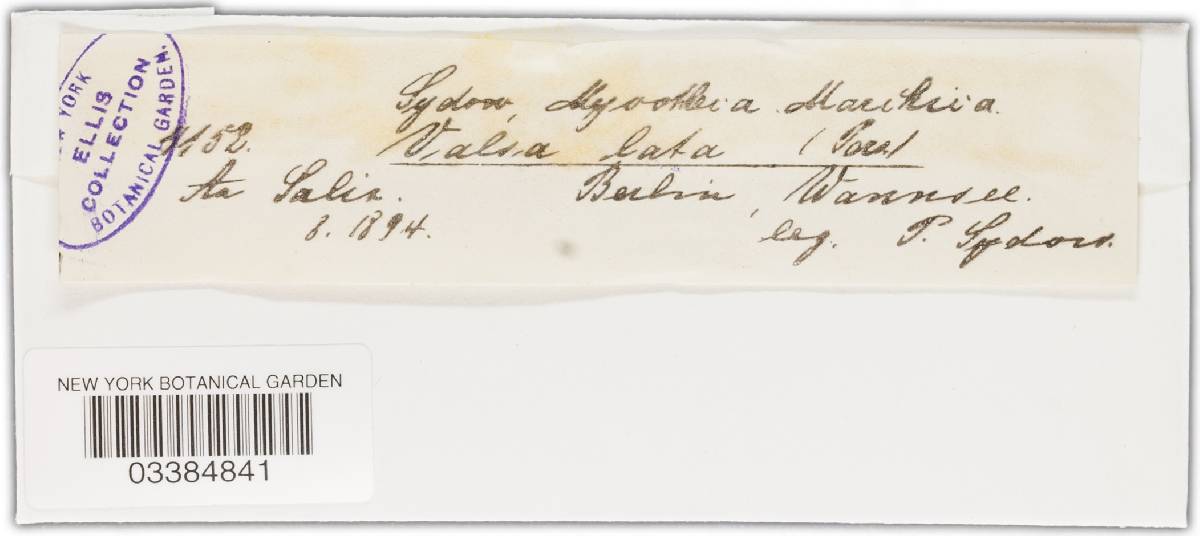 NEW YORK
ELLIS
COLLECTION
BOTANICAL GARDEN.
Sydow, Mycotheca Marchica.
52. Valsa lata (Pers)
An Salix. Berlin, Wannsee.
8. 1894. leg. P. Sydow.
NEW YORK BOTANICAL GARDEN
03384841